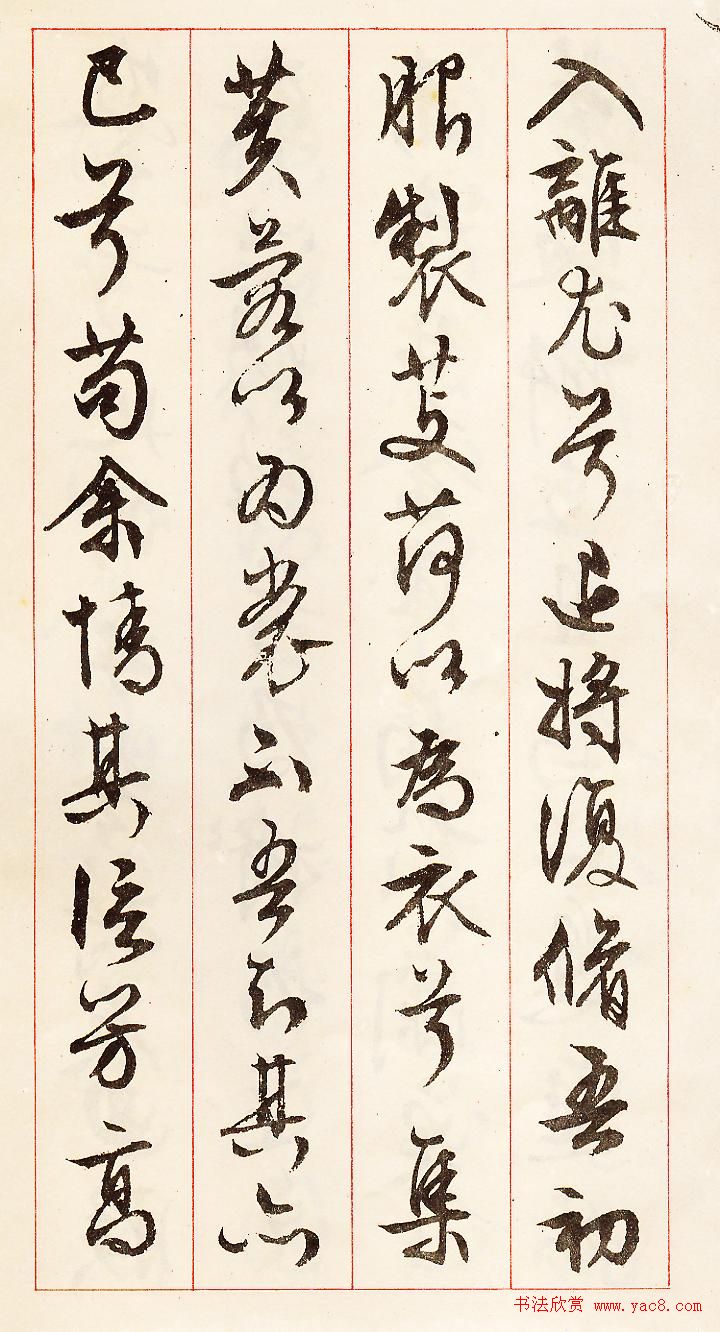 入離尤兮退將復脩吾初
服製芰荷以為衣兮集
芙蓉以為裳不吾知其亦
已兮苟余情其信芳高
书法欣赏 www.yac8.com